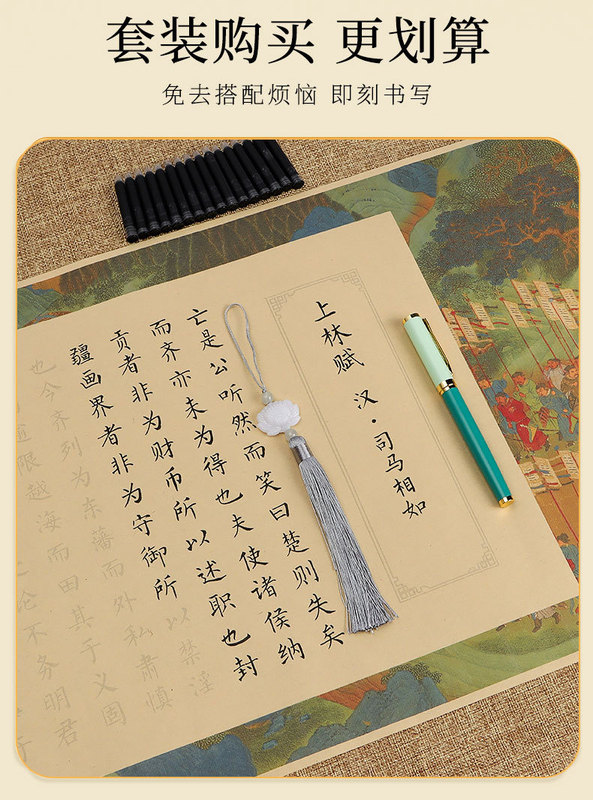 套装购买 更划算
免去搭配烦恼 即刻书写
上林赋 汉·司马相如
亡是公听然而笑曰楚则失矣
而齐亦未为得也夫使诸侯纳
贡者非为财币所以述职也封
疆画界者非为守御所以禁淫
也今齐列为东藩而外私肃慎
逾限越海而田其于义固
之论不务明君